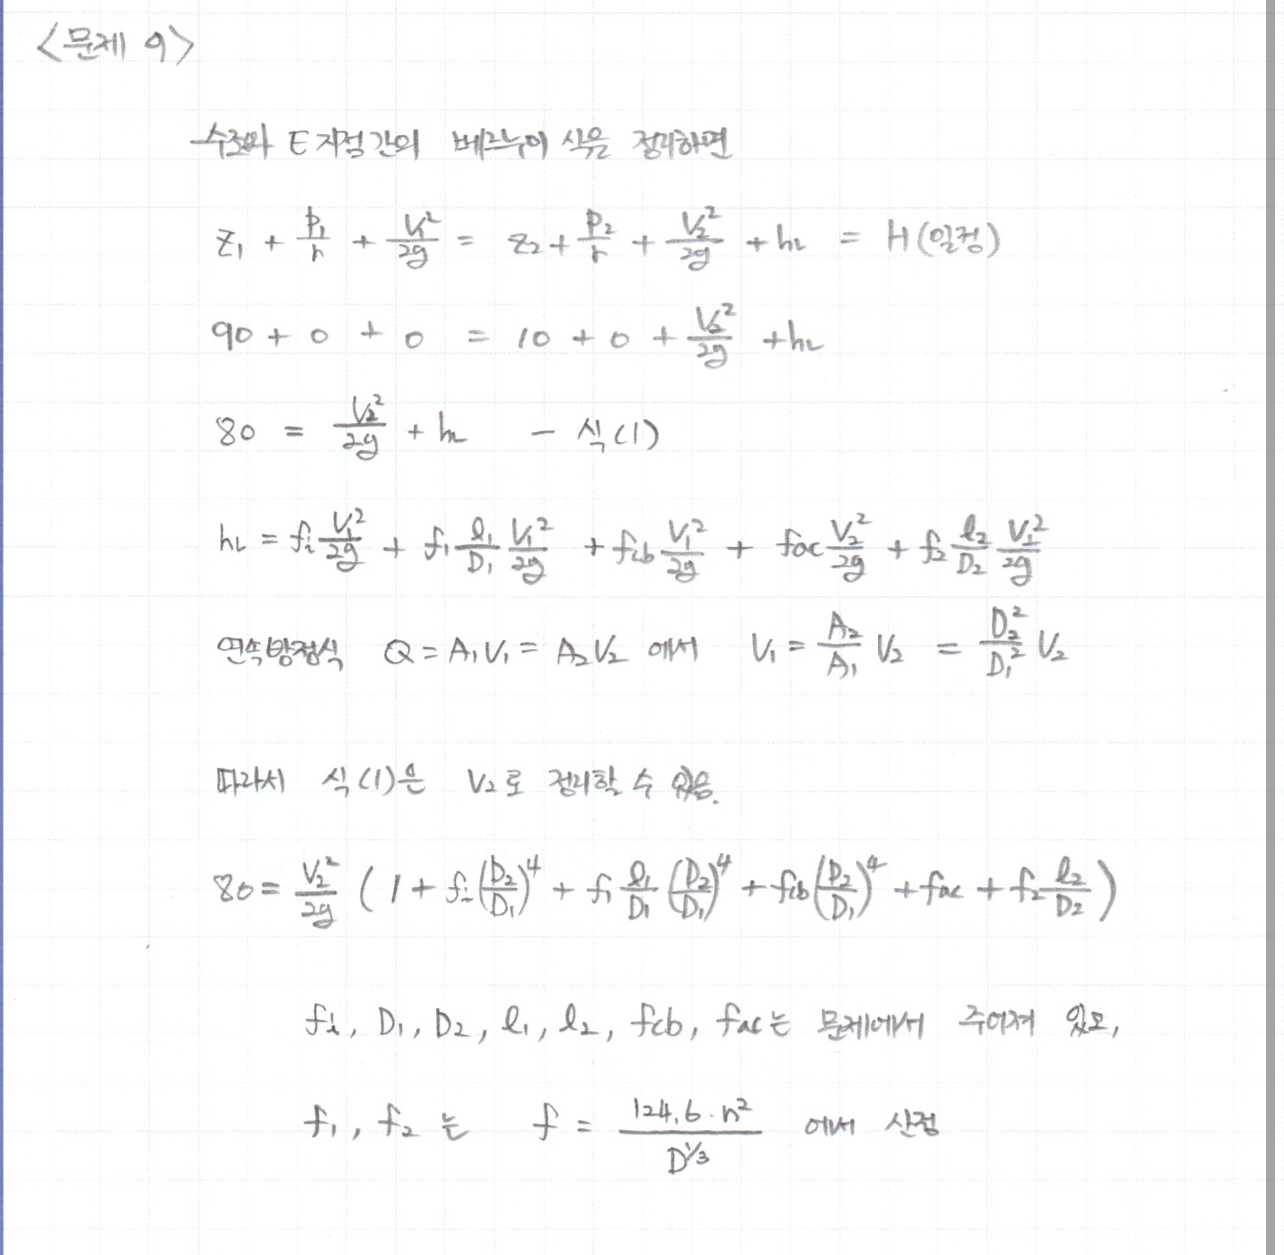 <문제 9>
수조와 E지점간의 베르누이 식을 정리하면
z₁ + p₁/r + V₁²/2g = z₂ + p₂/r + V₂²/2g + hL = H(일정)
90 + 0 + 0 = 10 + 0 + V₂²/2g + hL
80 = V₂²/2g + hL - 식(1)
hL = fi V₁²/2g + f₁ l₁/D₁ V₁²/2g + fcb V₁²/2g + fac V₂²/2g + f₂ l₂/D₂ V₂²/2g
연속방정식 Q = A₁V₁ = A₂V₂ 에서 V₁ = A₂/A₁ V₂ = D₂²/D₁² V₂
따라서 식(1)은 V₂로 정리할 수 있음.
80 = V₂²/2g (1 + fi(D₂/D₁)⁴ + f₁ l₁/D₁ (D₂/D₁)⁴ + fcb(D₂/D₁)⁴ + fac + f₂ l₂/D₂)
fi, D₁, D₂, l₁, l₂, fcb, fac는 문제에서 주어져 있고,
f₁, f₂ 는 f = 124.6·n²/D^⅓ 에서 산정